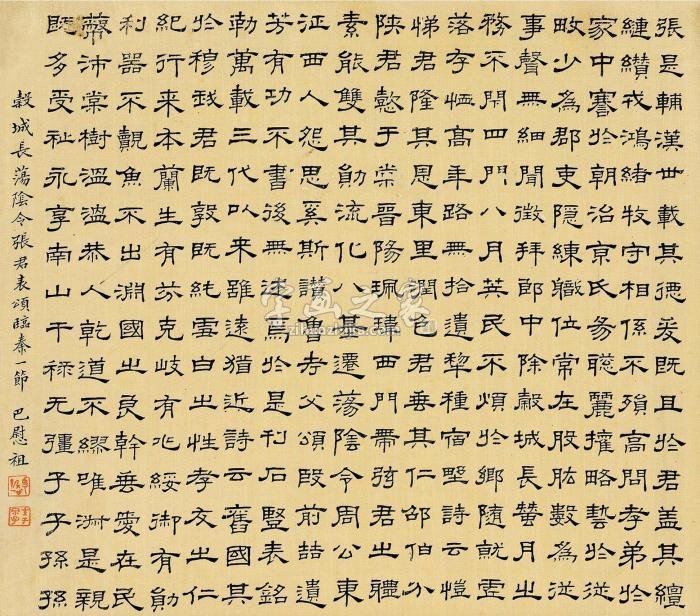 張是輔漢世載其德爰既且於君蓋其繵
縺纘戎鴻緒牧守相係不殞高問孝弟於
家中謇於朝治京氏易聰麗權略藝於從
畋少為郡吏隱練職位常在股肱數為從
事聲無細聞徵拜郎中除穀城長蠶月之
務不閉四門八月英民不煩於鄉隨就虛
落存恤高年路無拾遺犁種宿野詩云愷
悌君隆其恩東里潤色君垂其仁邵伯分
陝君懿于棠晉陽珮瑋西門帶弦君之體
素能雙其勛流化八基遷蕩陰令周公東
征西人怨思奚斯讚魯考父頌殷前喆遺
芳有功不書後無述焉於是刊石豎表銘
勒萬載三代以來雖遠猶近詩云舊國其
於穆我君既敦既純雪白之性孝友之仁
紀行来本蘭生有芬克岐有兆綏御有勛
利器不覿魚不出淵國之良幹垂愛在民
蔽沛棠樹溫溫恭人乾道不繆唯淑是親
既多受祉永享南山干祿无疆子子孫孫
穀城長蕩陰令張君表頌臨奉一節 巴慰祖
字画之家